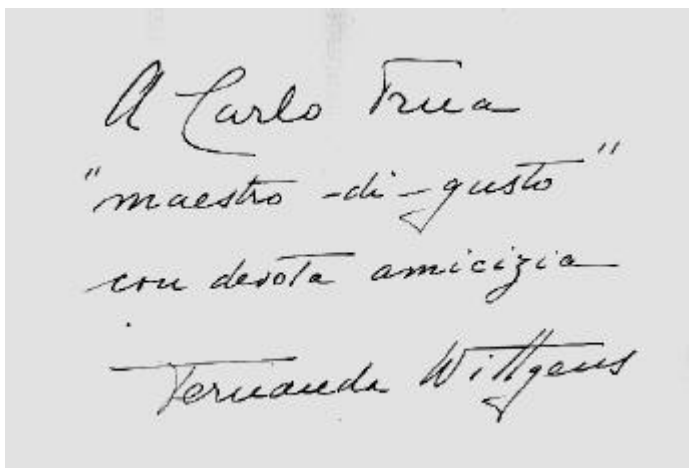 A Carlo Frua
"maestro-di-gusto"
con devota amicizia
Fernanda Wittgens